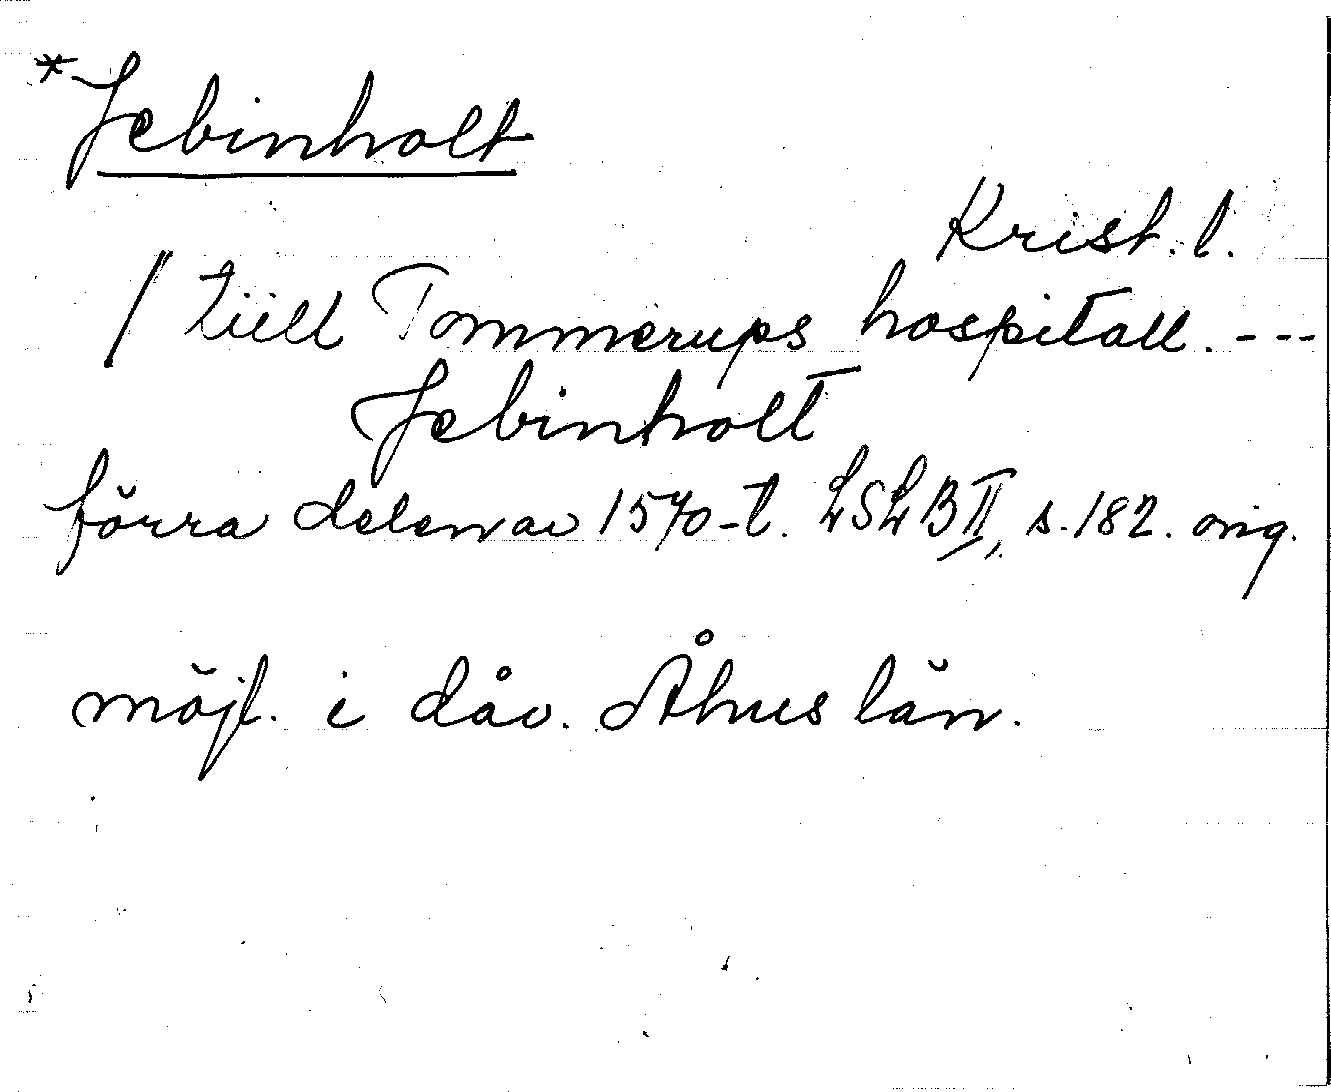 *Jebinholt
Krist. l.
/ tiill Tommerups hospitall. ---
Jebinholt
förra delen av 1570-t. LSLB II, s. 182. orig.
möjl. i dåv. Åhus län.